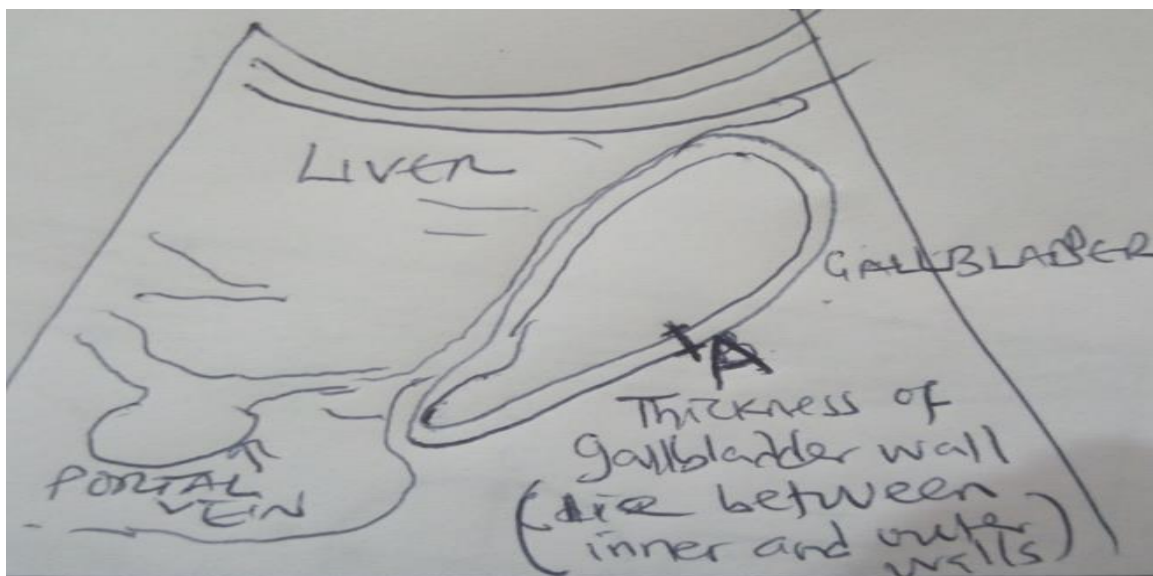 LIVER
GALLBLADDER
A
Thickness of
gallbladder wall
(ie between
inner and outer
walls)
PORTAL
VEIN